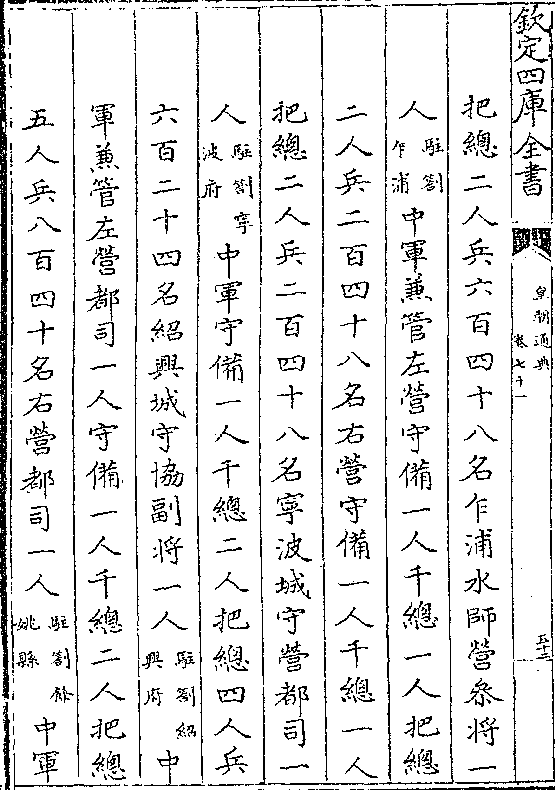 欽定四庫全書
皇朝通典
卷七十一
把總二人兵六百四十八名乍浦水師營參將一
人駐劄乍浦中軍兼管左營守備一人千總一人把總
二人兵二百四十八名右營守備一人千總一人
把總二人兵二百四十八名寧波城守營都司一
人駐劄寧波府中軍守備一人千總二人把總四人兵
六百二十四名紹興城守協副將一人駐劄紹興府中
軍兼管左營都司一人守備一人千總二人把總
五人兵八百四十名右營都司一人駐劄餘姚縣中軍